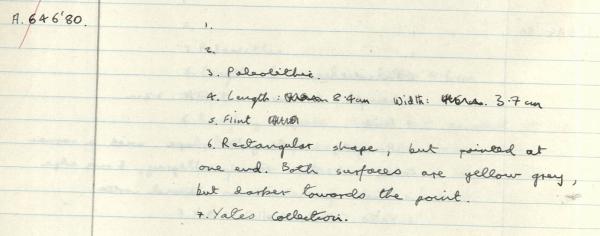 A. 646'80.
1.
2.
3. Paleolithic.
4. Length: 8.4cm Width: 3.7cm
5. Flint
6. Rectangular shape, but pointed at
one end. Both surfaces are yellow grey,
but darker towards the point.
7. Yates Collection.